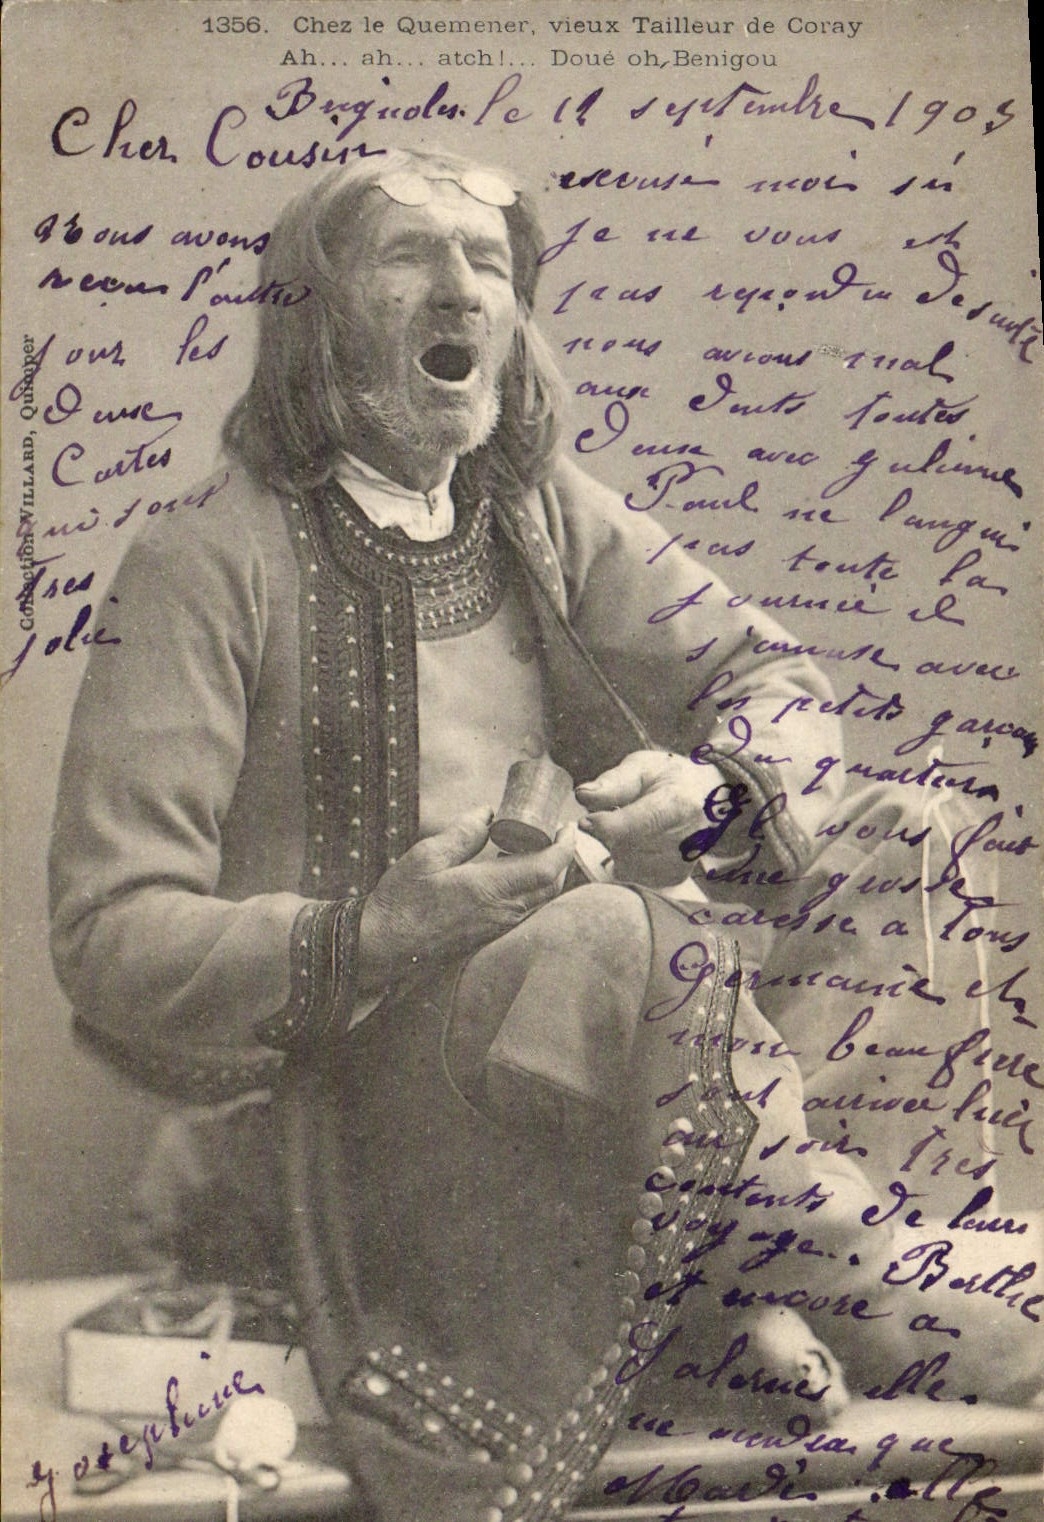 1356. Chez le Quemener, vieux Tailleur de Coray
Ah... ah... atch!... Doué oh, Benigou
Brignoles. le 12 septembre 1903
Cher Cousin
Nous avons
reçu l'autre
jour les
deux
Cartes
qui sont
Tres
jolie
excusé moi si
je ne vous est
pas repondu de suite
nous avions mal
aux dents toutes
deux avec Julienne
Paul ne langui
pas toute la
journée il
s'amuse avec
les petits garcons
du quartier.
Il vous fait
une grosse
caresse a tous
Germanie et
mon beau frere
sont arriver hier
au soir tres
contents de leur
voyage. Berthe
et encore a
Salernes elle
ne viendra que
Mardi elle
Josephine
Collection VILLARD, Quimper